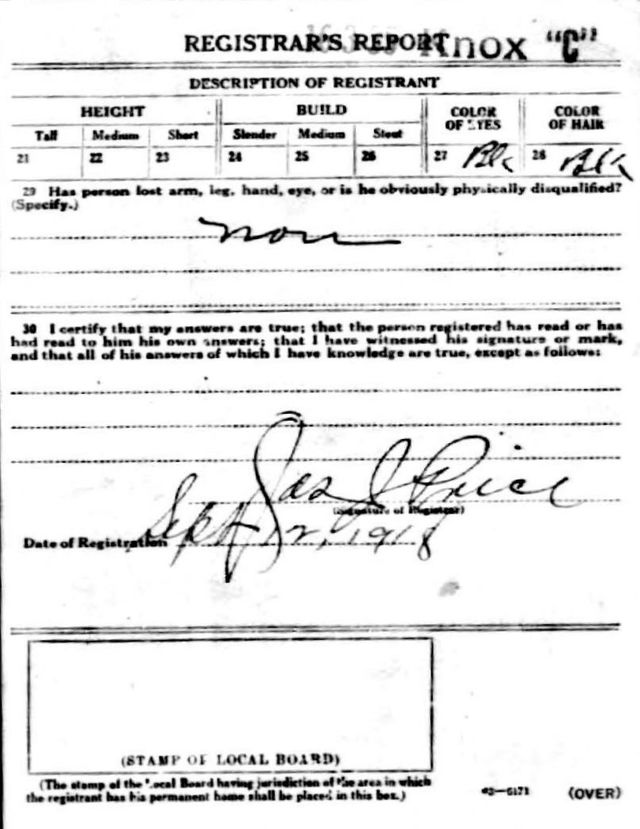 REGISTRAR'S REPORT Knox "C"
DESCRIPTION OF REGISTRANT
HEIGHT BUILD COLOR OF EYES COLOR OF HAIR
Tall Medium Short Slender Medium Stout
21 22 23 24 25 26 27 Blk 28 Blk
29 Has person lost arm, leg, hand, eye, or is he obviously physically disqualified?
(Specify.)
non
30 I certify that my answers are true; that the person registered has read or has
had read to him his own answers; that I have witnessed his signature or mark,
and that all of his answers of which I have knowledge are true, except as follows:
Jas J Price
(Signature of Registrar)
Date of Registration Sept 12, 1918
(STAMP OF LOCAL BOARD)
(The stamp of the Local Board having jurisdiction of the area in which
the registrant has his permanent home shall be placed in this box.)
03—6171 (OVER)